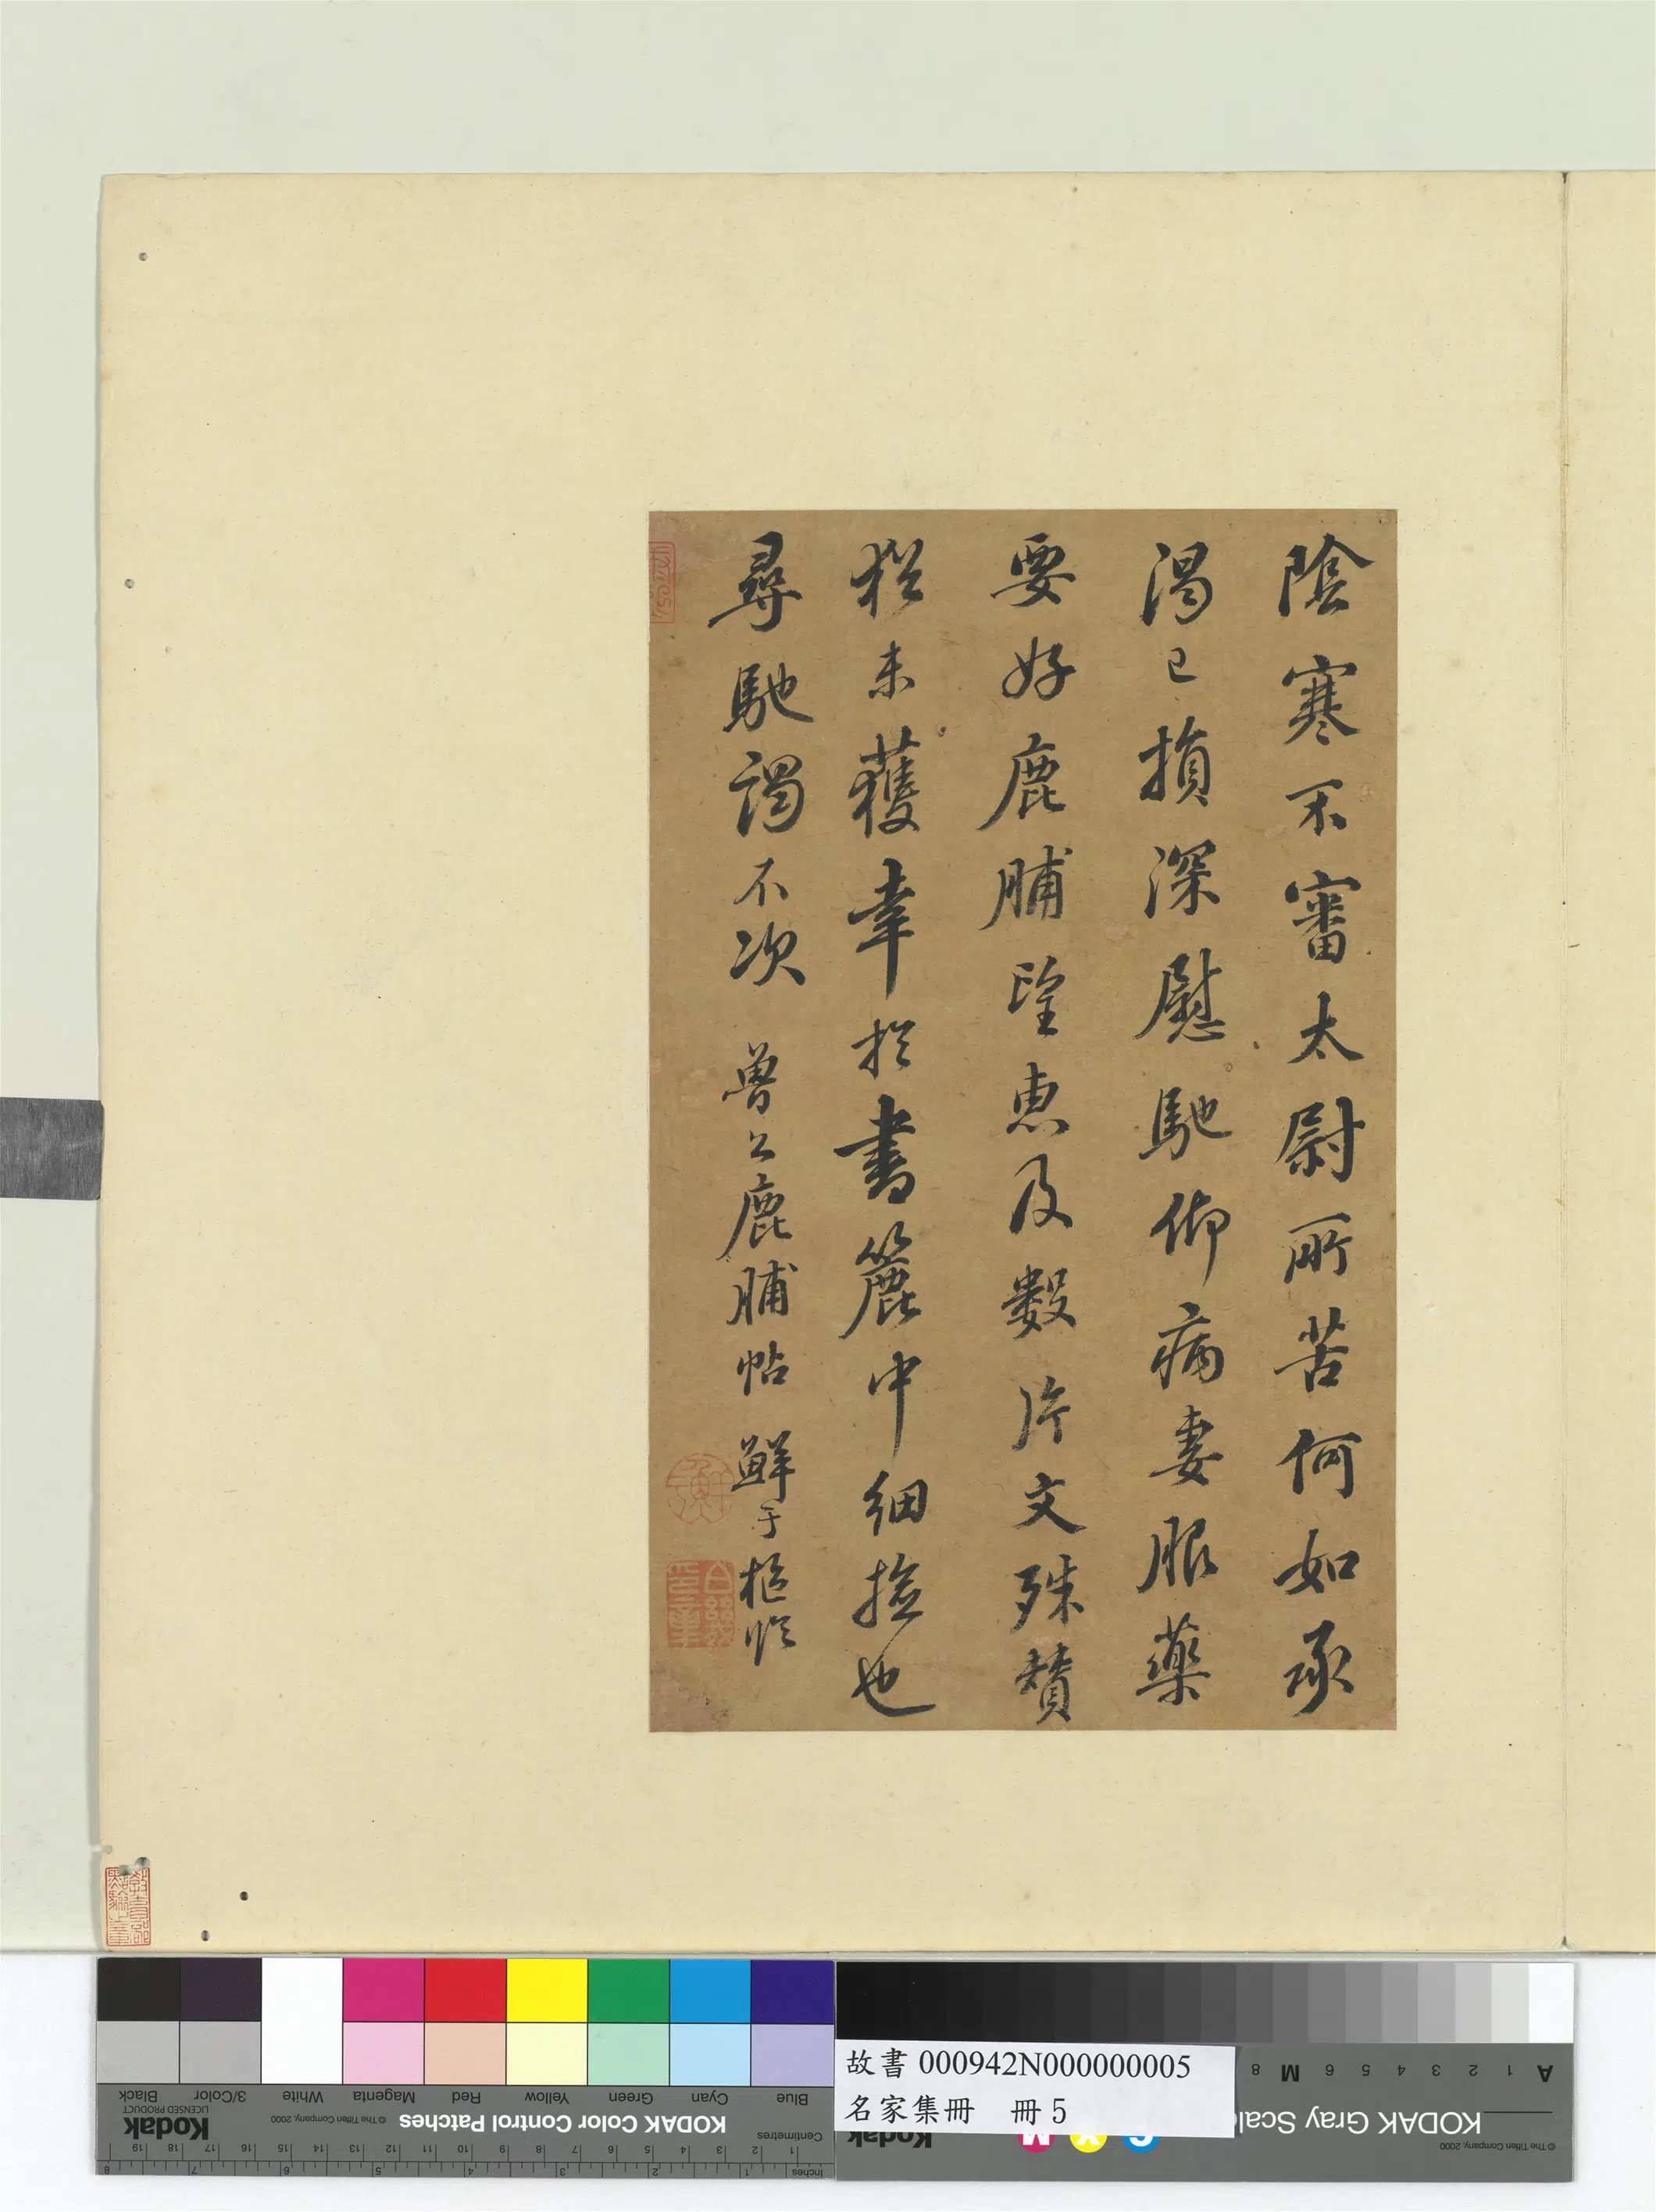 陰寒不審太尉所苦何如承
渴已損深慰馳仰病妻服藥
要好鹿脯望惠及數片文殊賛
猶未獲幸於書簏中細撿也
尋馳謁不次 魯公鹿脯帖 鮮于樞臨
故書 000942N000000005
名家集冊 冊 5
Blue Cyan Green Yellow Red Magenta White 3/Color Black
KODAK Color Control Patches © The Tiffen Company, 2000 Kodak LICENSED PRODUCT
Inches Centimetres
1 2 3 4 5 6 7 8 9 10 11 12 13 14 15 16 17 18 19
1 2 3 4 5 6 7 8
A 1 2 3 4 5 6 M 8
KODAK Gray Scale
© The Tiffen Company, 2000
Kodak
C Y M